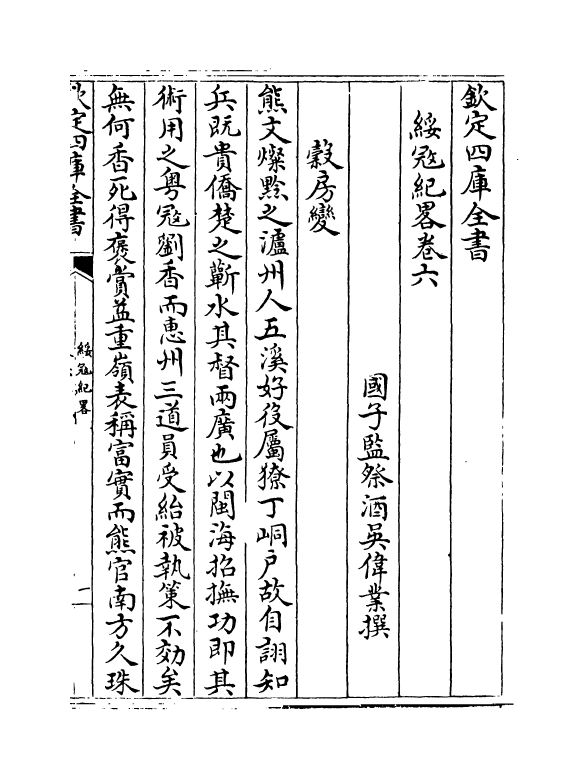 欽定四庫全書
綏冦紀畧卷六
國子監祭酒吳偉業撰
穀房變
熊文燦黔之瀘州人五溪好役屬獠丁峒戶故自詡知
兵既貴僑楚之蘄水其督兩廣也以閩海招撫功即其
術用之粤冦劉香而惠州三道員受紿被執策不効矣
無何香死得褒賞益重嶺表稱富實而熊官南方久珠
欽定四庫全書
綏冦紀畧